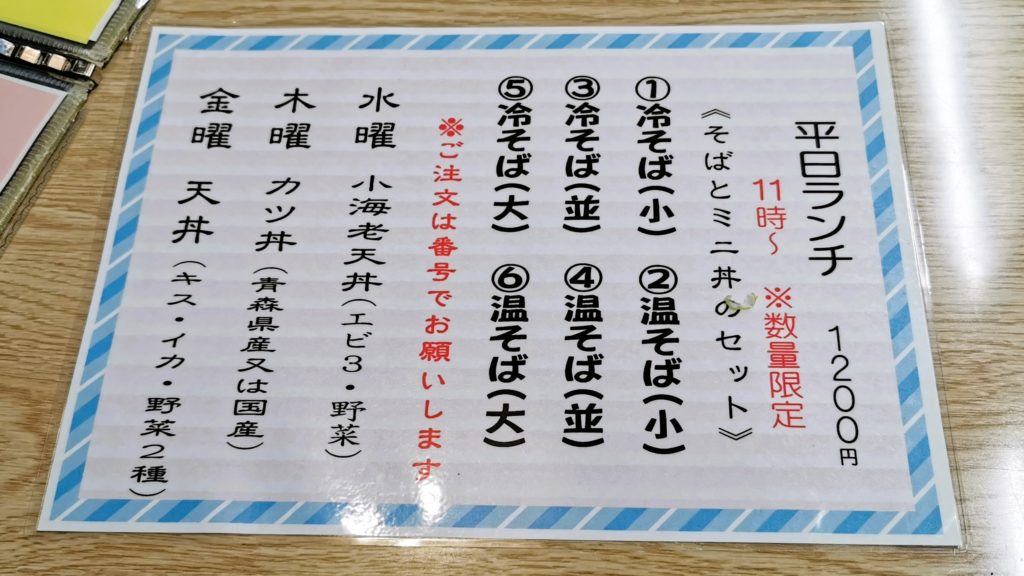 平日ランチ 1200円
11時～ ※数量限定
《そばとミニ丼のセット》
①冷そば(小) ②温そば(小)
③冷そば(並) ④温そば(並)
⑤冷そば(大) ⑥温そば(大)
※ご注文は番号でお願いします
水曜 小海老天丼(エビ3・野菜)
木曜 カツ丼(青森県産又は国産)
金曜 天丼(キス・イカ・野菜2種)